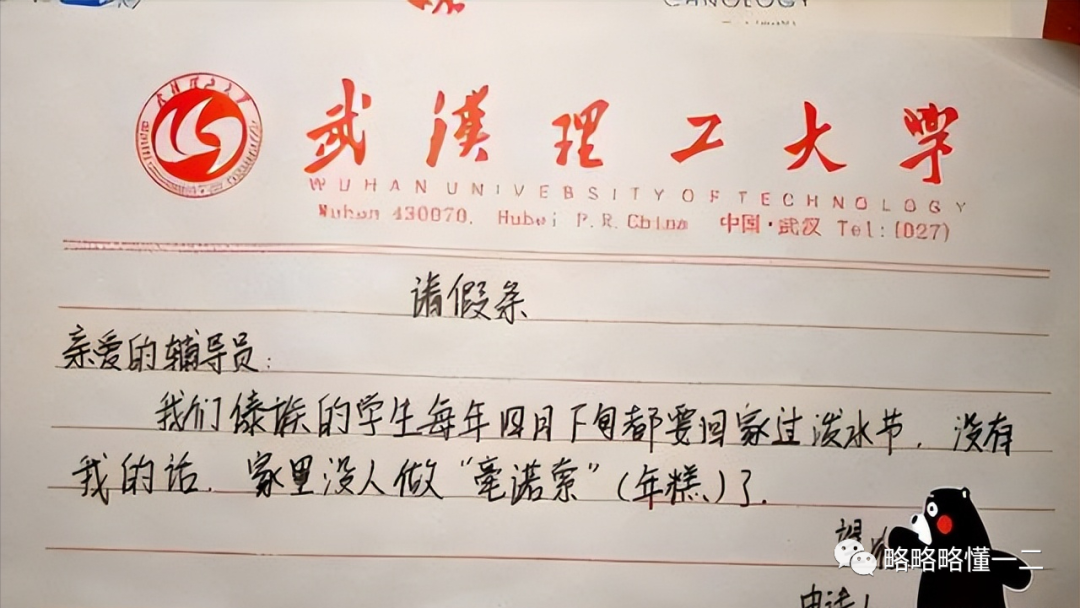 CHNOLOGY
武漢理工大学
WUHAN UNIVEBSITY OF TECHNOLOGY
Wuhan 430070. Hubei P.R.China 中国·武汉 Tel:(027)
请假条
亲爱的辅导员:
我们傣族的学生每年四月下旬都要回家过泼水节,没有
我的话,家里没人做“毫诺索”(年糕)了.
望
略略略懂一二
申请人